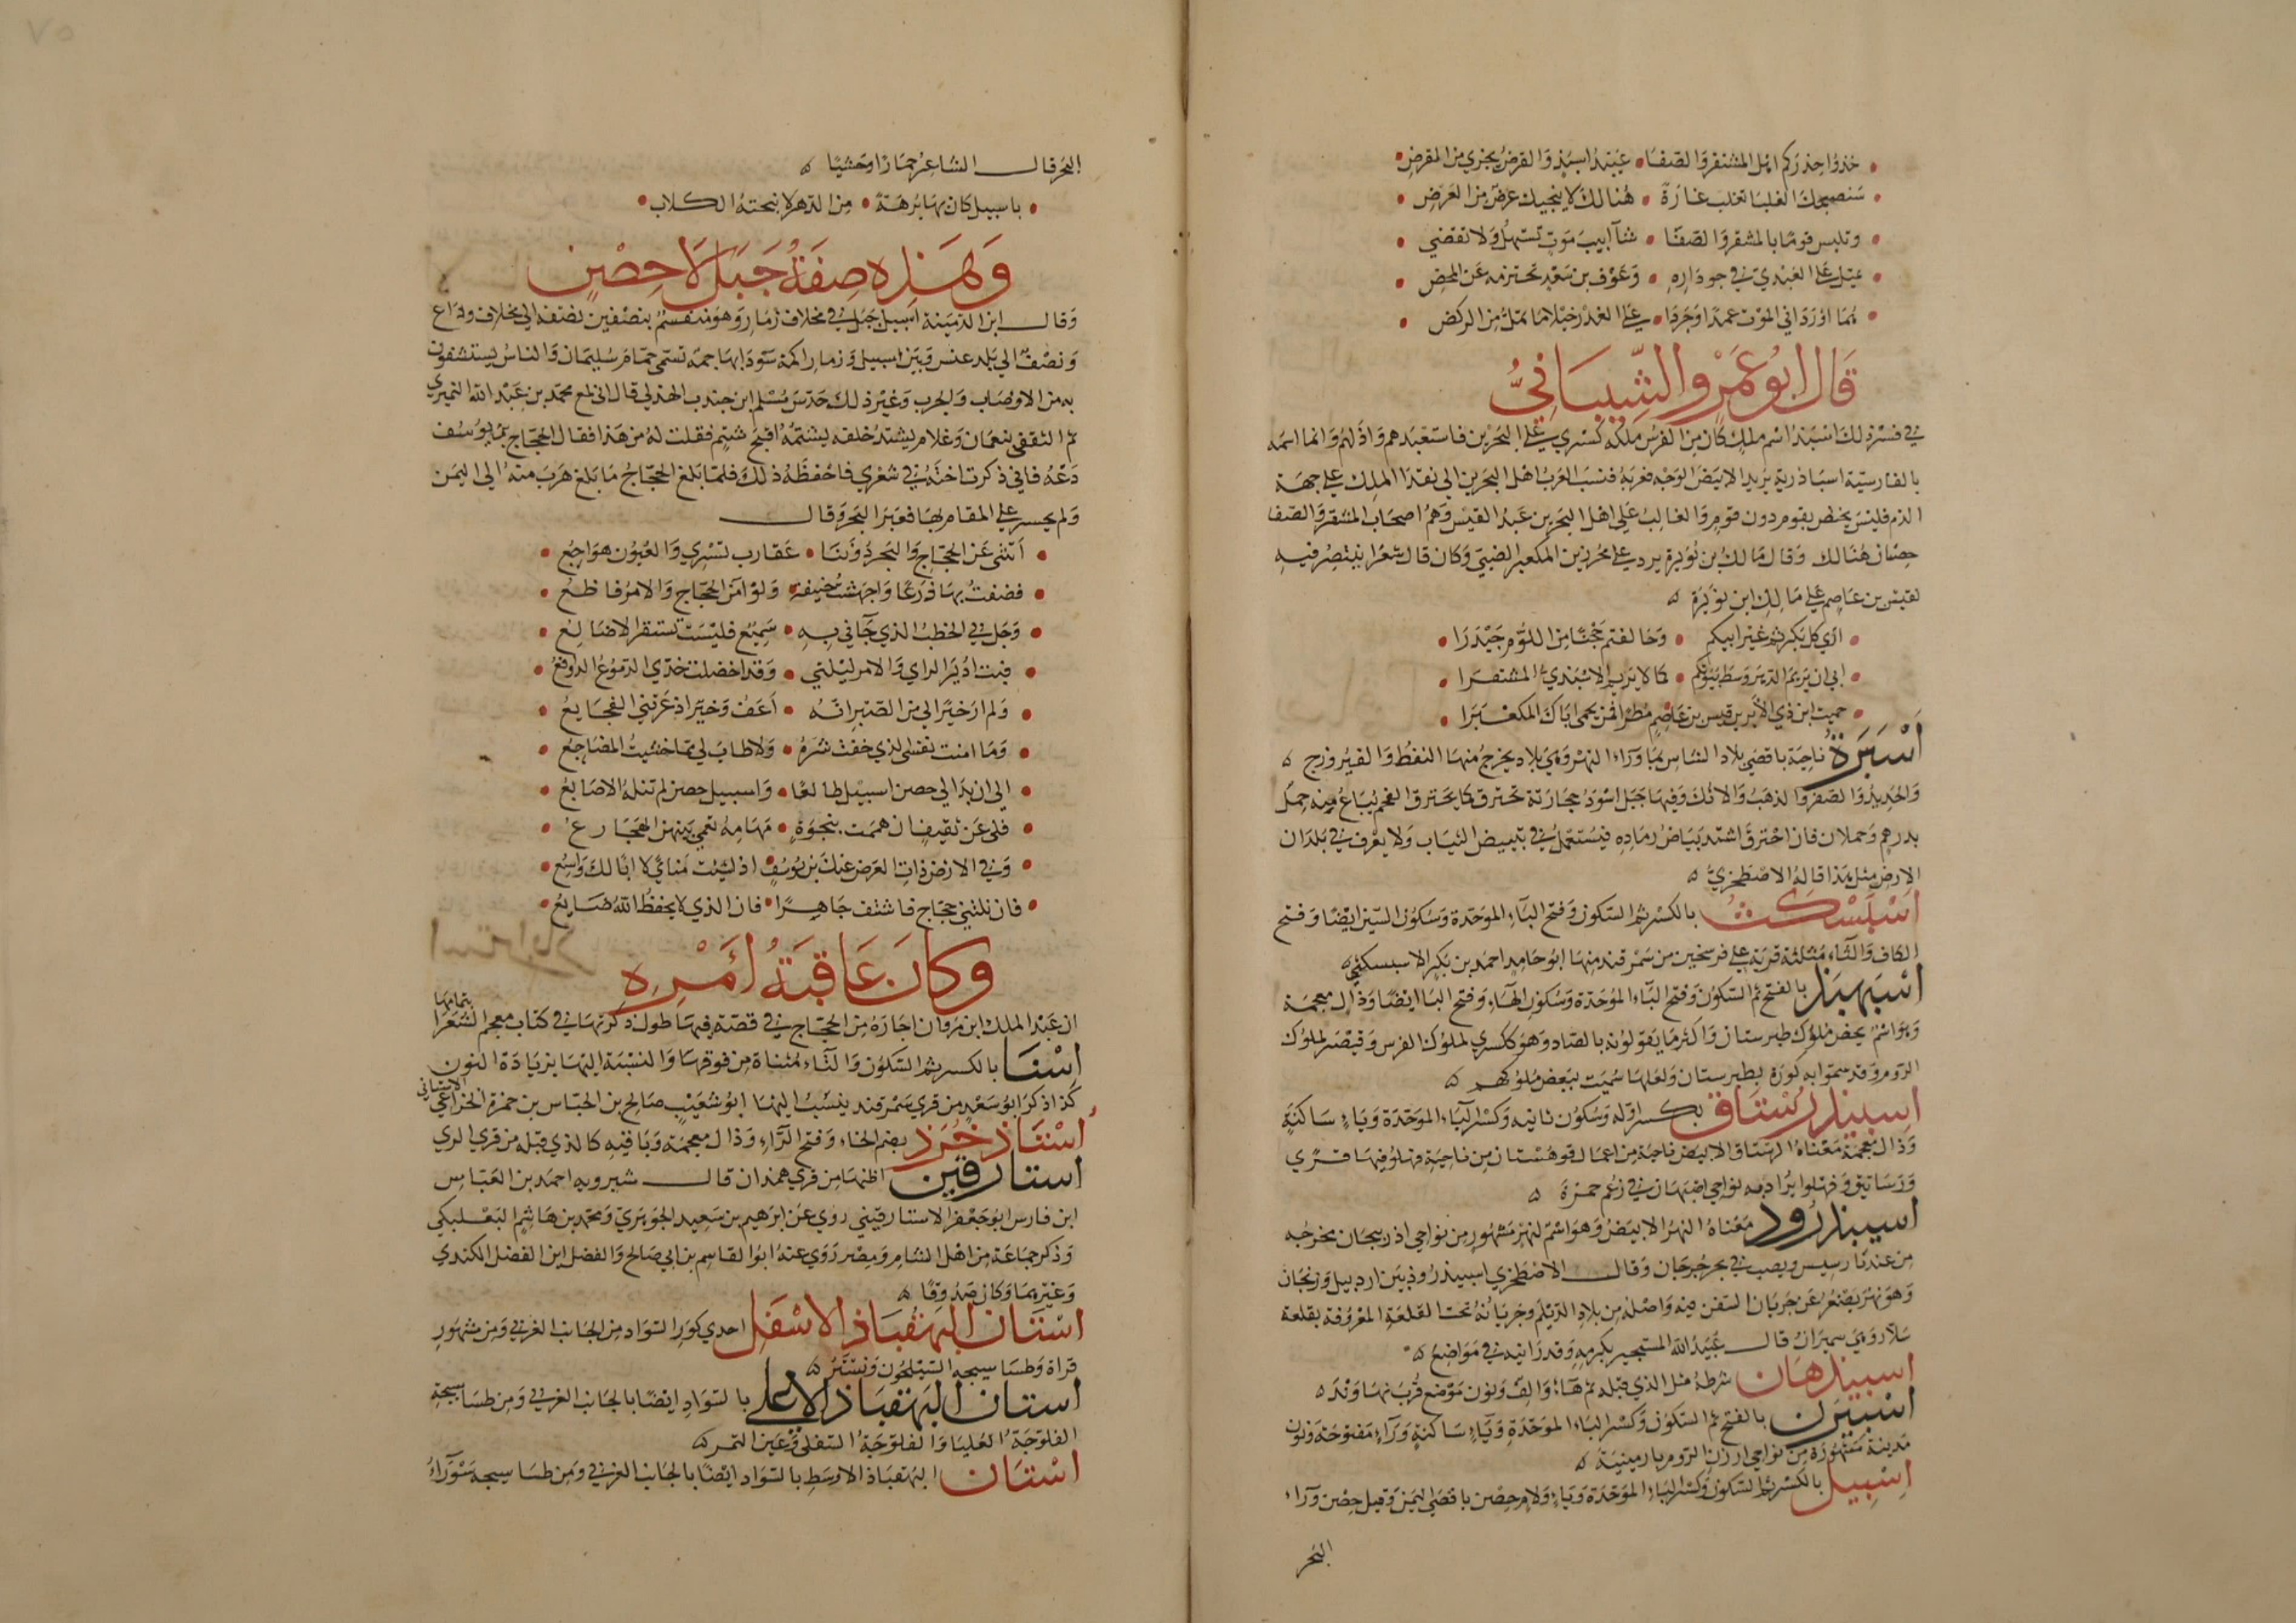 خذوا حذركم اهل المشقر والصفا عبيد اسبذ والقرض يجزي من القرض
ستصبحك الغلبا تغلب غارة هنالك لا ينجيك عرض من العرض
وتلبس قوما بالمشقر والصفا شآبيب موت تستهل ولا تغضي
تميل على العبدي في جو داره وعوف بن سعد تخترمه عن المحض
هما اورداني الموت عمدا وجردا على الغدر خيلا ما تمل من الركض
قال ابو عمرو الشيباني
في فسر ذلك اسبذ اسم ملك كان من الفرس ملكه كسرى على البحرين فاستعبدهم واذلهم وانما اسمه
بالفارسية اسباذرية يريد الابيض الوجه فعربه فنسب العرب اهل البحرين الى هذا الملك على جهة
الذم فليس يختص بقوم دون قوم والغالب على اهل البحرين عبد القيس وهم اصحاب المشقر والصفا
حصنان هنالك وقال مالك بن نويرة يرد على محرز بن المكعبر الضبي وكان قال شعرا ينتصر فيه
لقيس بن عاصم على مالك ابن نويرة
ارى كل بكر ثم غير ابيكم وخالفتم حجنا من اللوم حيدرا
ابى ان يريم الدهر وسط بيوتكم كما لا يريم الاسبذي المشقرا
حميت ابن ذي الأير بن قيس بن عاصم مطرا فمن يحمي اباك المكعبرا
اسبرة ناحية باقصى بلاد الشاس بما وراء النهر وهي بلاد يخرج منها النفط والفيروزج
والحديد والصفر والذهب والآنك وفيها جبل اسود حجارته تحترق كما يحترق الفحم يباع منه حمل
بدرهم وحملان فان احترق اشتد بياض رماده فيستعمل في تبييض الثياب ولا يعرف في بلدان
الارض مثل هذا قاله الاصطخري
اسبسكث بالكسر ثم السكون وفتح الباء الموحدة وسكون السين ايضا وفتح
الكاف والثاء مثلثة قرية على فرسخين من سمرقند منها ابو حامد احمد بن بكر الاسبسكثي
اسبهبذ بالفتح ثم السكون وفتح الباء الموحدة وسكون الهاء وفتح البا ايضا وذال معجمة
وهو اسم يخص ملوك طبرستان واكثر ما يقولونه بالصاد وهو ككسرى لملوك الفرس وقيصر لملوك
الروم وقد سموا به كورة بطبرستان ولعلها سميت ببعض ملوكهم
اسبيذرستاق بكسر اوله وسكون ثانيه وكسر الباء الموحدة وياء ساكنة
وذال معجمة معناه الرستاق الابيض ناحية من اعمال قوهستان من ناحية فهلو فيها قرى
ورساتيق وفهلو يراد به نواحي اصبهان في زعم حمزة
اسبيذرود معناه النهر الابيض وهو اسم لنهر مشهور من نواحي اذربيجان مخرجه
من عند بارسيس ويصب في بحر جرجان وقال الاصطخري اسبيذروذ بين اردبيل وزنجان
وهو نهر يصغر عن جريان السفن فيه واصله من بلاد الديلم وجريانه تحت القلعة المعروفة بقلعة
سلار وهي سميران قال عبيد الله المستجير بكرمه وقد رأيته في مواضع
اسبيذهان شرطه مثل الذي قبله ثم هاء والف ونون موضع قرب نهاوند
اسبيرن بالفتح ثم السكون وكسر الباء الموحدة وياء ساكنة وراء مفتوحة ونون
مدينة مشهورة من نواحي ارزن الروم بارمينية
اسبيل بالكسر ثم السكون وكسر الباء الموحدة وياء ولام حصن باقصى اليمن وقيل حصن وراء
البحر
البحر قال الشاعر حمارا وحشيا
باسبيل كان بها برهة من الدهر لا نبحته الكلاب
وهذه صفة جبل لا حصن
وقال ابن الدمينة اسبيل جبل في مخلاف ذمار وهو منقسم بنصفين نصفه الى مخلاف وداع
ونصف الى بلد عنس وبين اسبيل وذمار اكمة سودا بها حمة تسمى حمام سليمان والناس يستشفون
به من الاوصاب والجرب وغير ذلك حدث مسلم ابن جندب الهذلي قال اني لمع محمد بن عبد الله النميري
ثم الثقفي بنعمان وغلام يشتد خلفه يشتمه اقبح شتيم فقلت له من هذا فقال الحجاج بن يوسف
دعه فاني ذكرت اخته في شعري فاحفظه ذلك فلما بلغ الحجاج ما بلغ هرب منه الى اليمن
ولم يجسر على المقام بها فعبر البحر وقال
اتتني عن الحجاج والبحر دوننا عقارب تسري والعيون هواجع
فضقت بها ذرعا واجهشت خيفة ولو آمن الحجاج والامر فاظع
وحل في الخطب الذي جاني به سميع فليست تستقر الاضالع
فبت ادير الراي والامر ليلتي وقد اخضلت خدي الدموع الدوافع
ولم ار خيرا لي من الصبر انه اعف وخير اذ عرتني الفجايع
وما امنت نفسي الذي خفت شره ولا طاب لي مما خشيت المضاجع
الى ان بدا لي حصن اسبيل طالعا واسبيل حصن لم تنله الاصابع
فلي عن ثقيف ان هممت بنجوة مهامه تعمى بينهن الهجارع
وفي الارض ذات العرض عنك بن يوسف اذ شئت منأى لا ابا لك واسع
فان نلتني حجاج فاشتف جاهرا فان الذي لا يحفظ الله ضايع
وكان عاقبة امره
ان عبد الملك ابن مروان اجاره من الحجاج في قصة فيها طول ذكرتها في كتاب معجم الشعرا بتمامها
استا بالكسر ثم السكون والتاء مثناة من فوقها والنسبة اليها بزيادة النون
كذا ذكر ابو سعد من قرى سمرقند ينسب اليها ابو شعيب صالح بن العباس بن حمزة الخزاعي الاستاني
استاذخرذ بضم الخاء وفتح الراء وذال معجمة وباقيه كالذي قبله من قرى الري
استارقين اظنها من قرى همدان قال شيرويه احمد بن العباس
ابن فارس ابو جعفر الاستارقيني روى عن ابرهيم بن سعيد الجوهري ومحمد بن هاشم البعلبكي
وذكر جماعة من اهل الشام ومصر روى عنه ابو القاسم بن ابي صالح والفضل ابن الفضل الكندي
وغيرهما وكان صدوقا
استان البهقباذ الاسفل احدى كور السواد من الجانب الغربي ومن مشهور
قراه وطساسيجه السيلحون ونستر
استان البهقباذ الاعلى بالسواد ايضا بالجانب الغربي ومن طساسيجه
الفلوجة العليا والفلوجة السفلى وعين التمر
استان البهقباذ الاوسط بالسواد ايضا بالجانب الغربي ومن طساسيجه سورآء